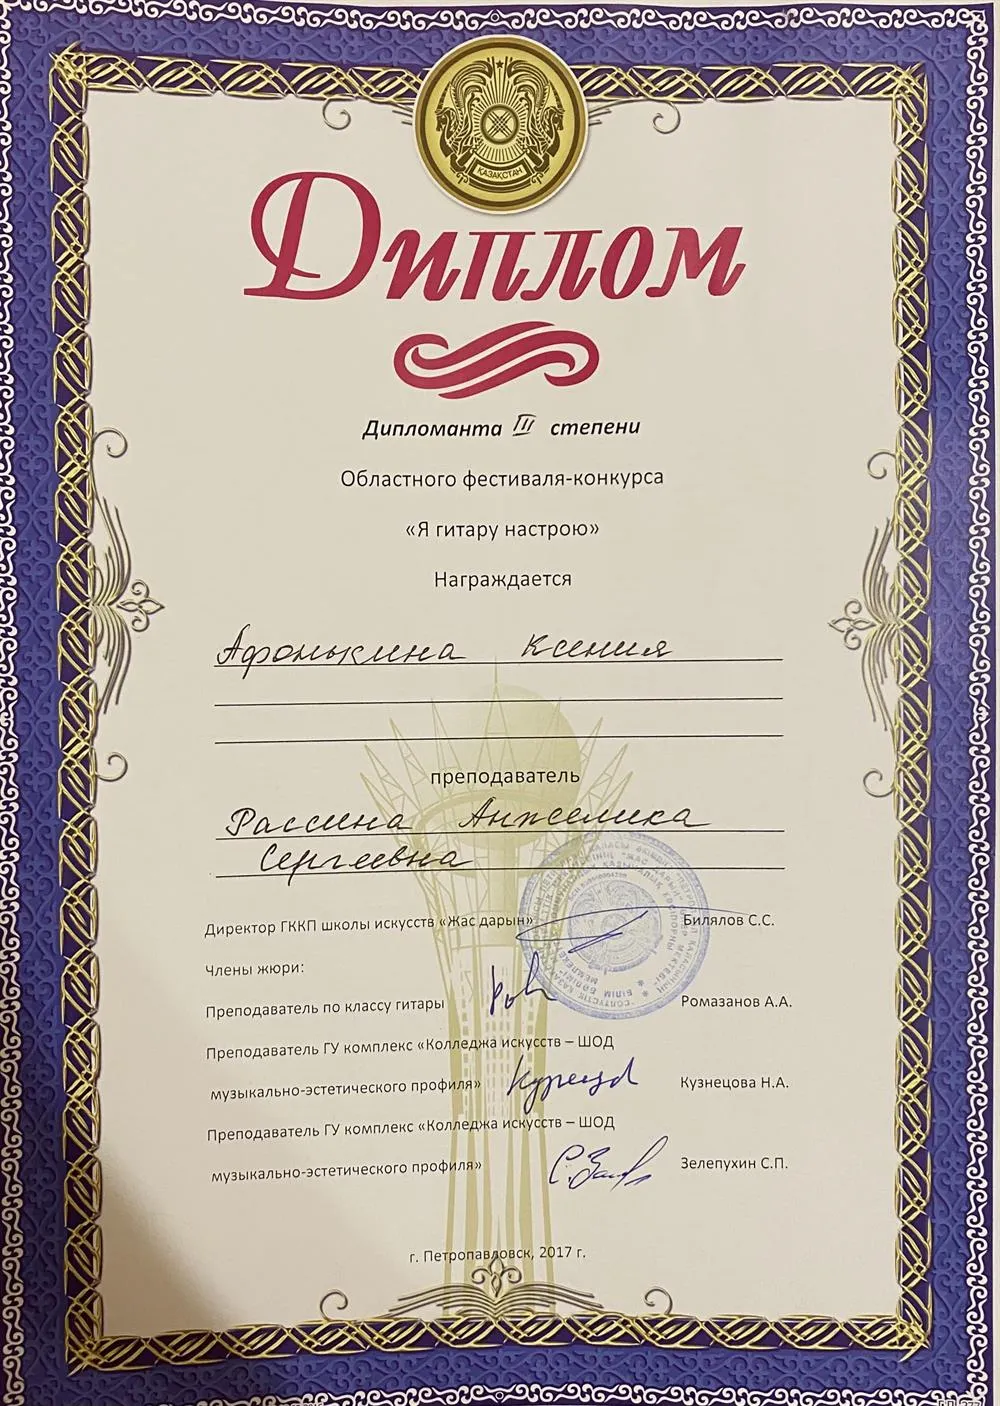 ҚАЗАҚСТАН
Диплом
Дипломанта III степени
Областного фестиваля-конкурса
«Я гитару настрою»
Награждается
Афонькина Ксения
преподаватель
Рассина Анжелика
Сергеевна
Директор ГККП школы искусств «Жас дарын» Билялов С.С.
Члены жюри:
Преподаватель по классу гитары Ромазанов А.А.
Преподаватель ГУ комплекс «Колледжа искусств – ШОД
музыкально-эстетического профиля» Кузнецова Н.А.
Преподаватель ГУ комплекс «Колледжа искусств – ШОД
музыкально-эстетического профиля» Зелепухин С.П.
г. Петропавловск, 2017 г.